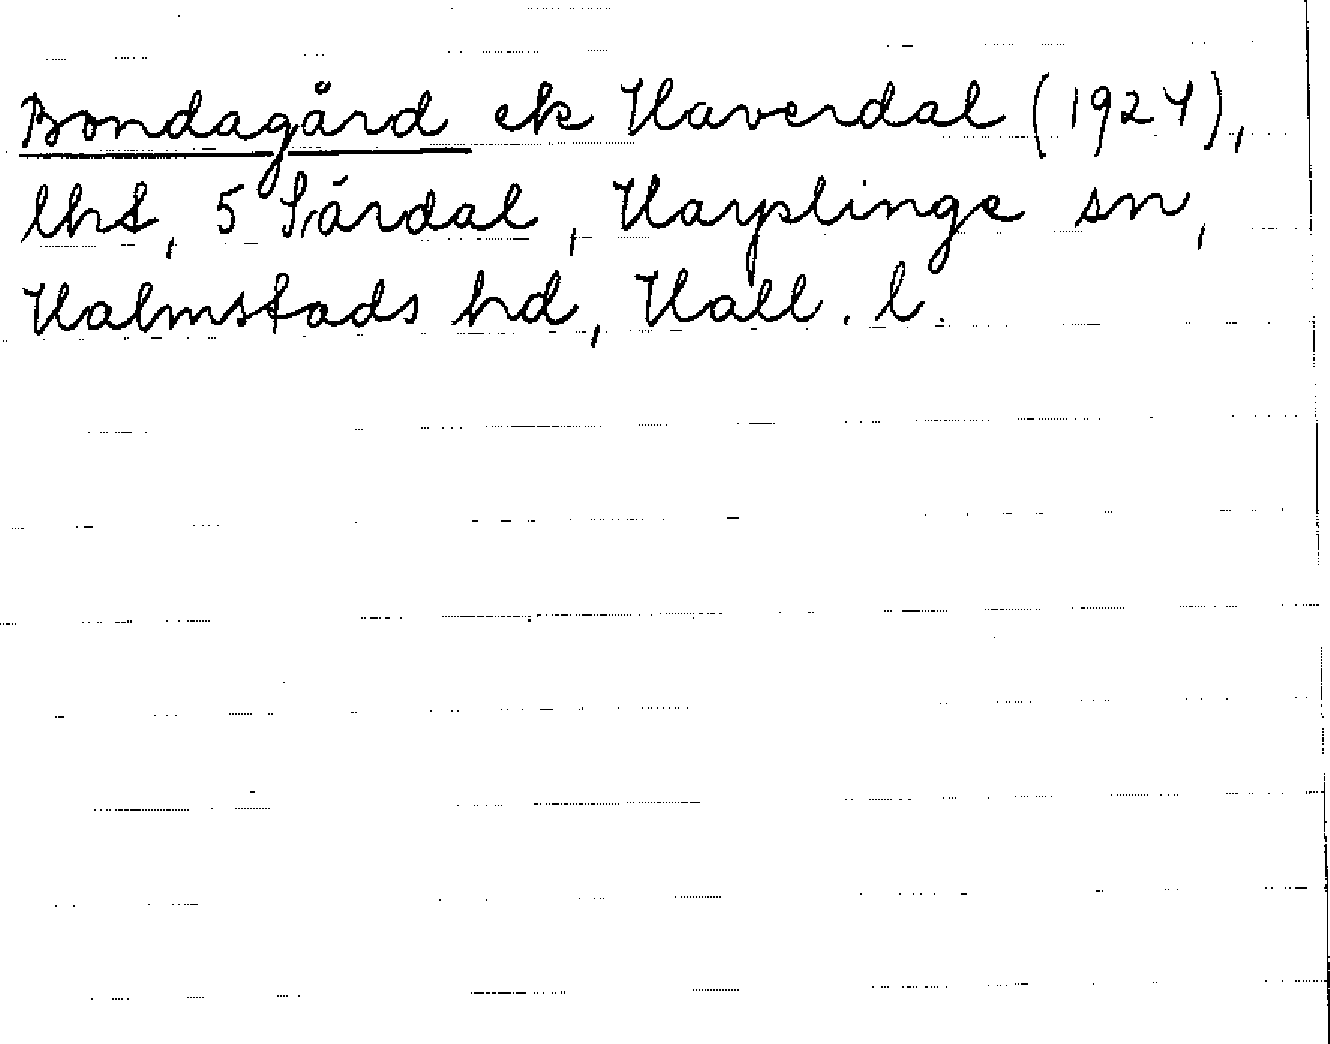 Bondagård ek Haverdal (1924),
lht, 5 Särdal, Harplinge sn,
Halmstads hd, Hall. l.